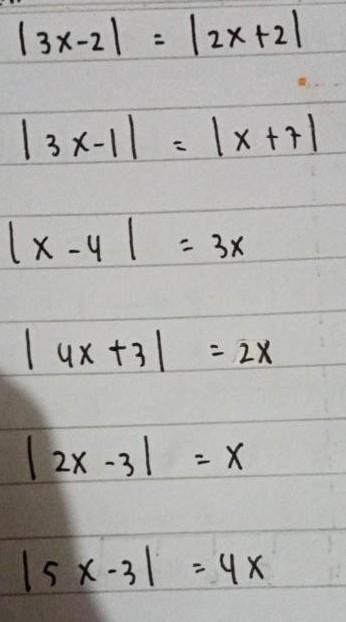 |3x-2| = |2x+2|
|3x-1| = |x+7|
|x-4| = 3x
|4x+3| = 2x
|2x-3| = x
|5x-3| = 4x